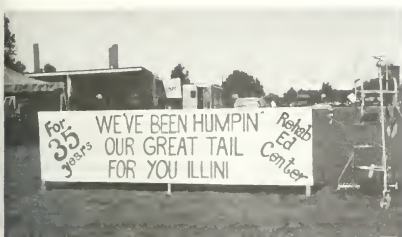 For
35
years
WE'VE BEEN HUMPIN'
OUR GREAT TAIL
FOR YOU ILLINI
Rehab
Ed
Center